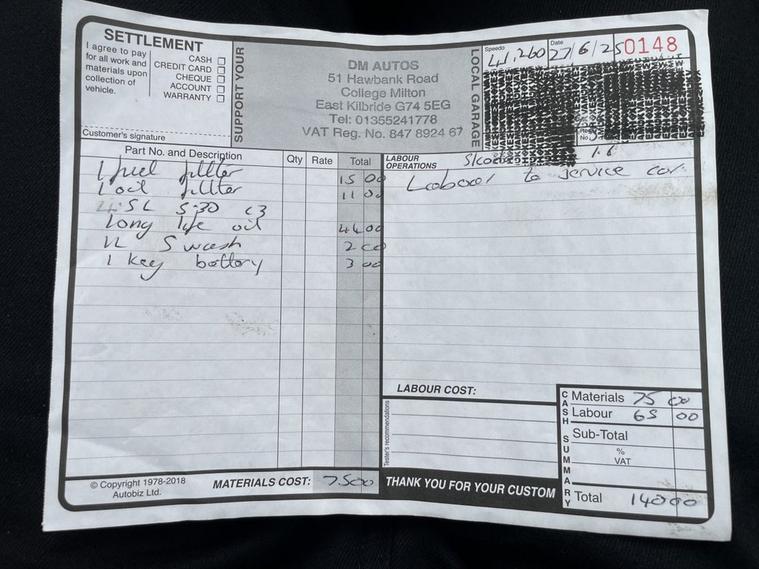 SETTLEMENT
I agree to pay for all work and materials upon collection of vehicle.
CASH
CREDIT CARD
CHEQUE
ACCOUNT
WARRANTY
Customer's signature
SUPPORT YOUR
DM AUTOS
51 Hawbank Road
College Milton
East Kilbride G74 5EG
Tel: 01355241778
VAT Reg. No. 847 8924 67
LOCAL GARAGE
Speedo 41,260
Date 27/6/25
0148
Part No. and Description Qty Rate Total
1 fuel fillter 15 00
1 oil fillter 11 00
4.5L 5.30 c3
Long life oil 44 00
1L S wash 2 00
1 key battery 3 00
MATERIALS COST: 7500
© Copyright 1978-2018
Autobiz Ltd.
LABOUR OPERATIONS Skoda 1.6
Labour to service car.
LABOUR COST:
Tester's recommendations
THANK YOU FOR YOUR CUSTOM
CASH SUMMARY
Materials 75 00
Labour 65 00
Sub-Total
% VAT
Total 14000